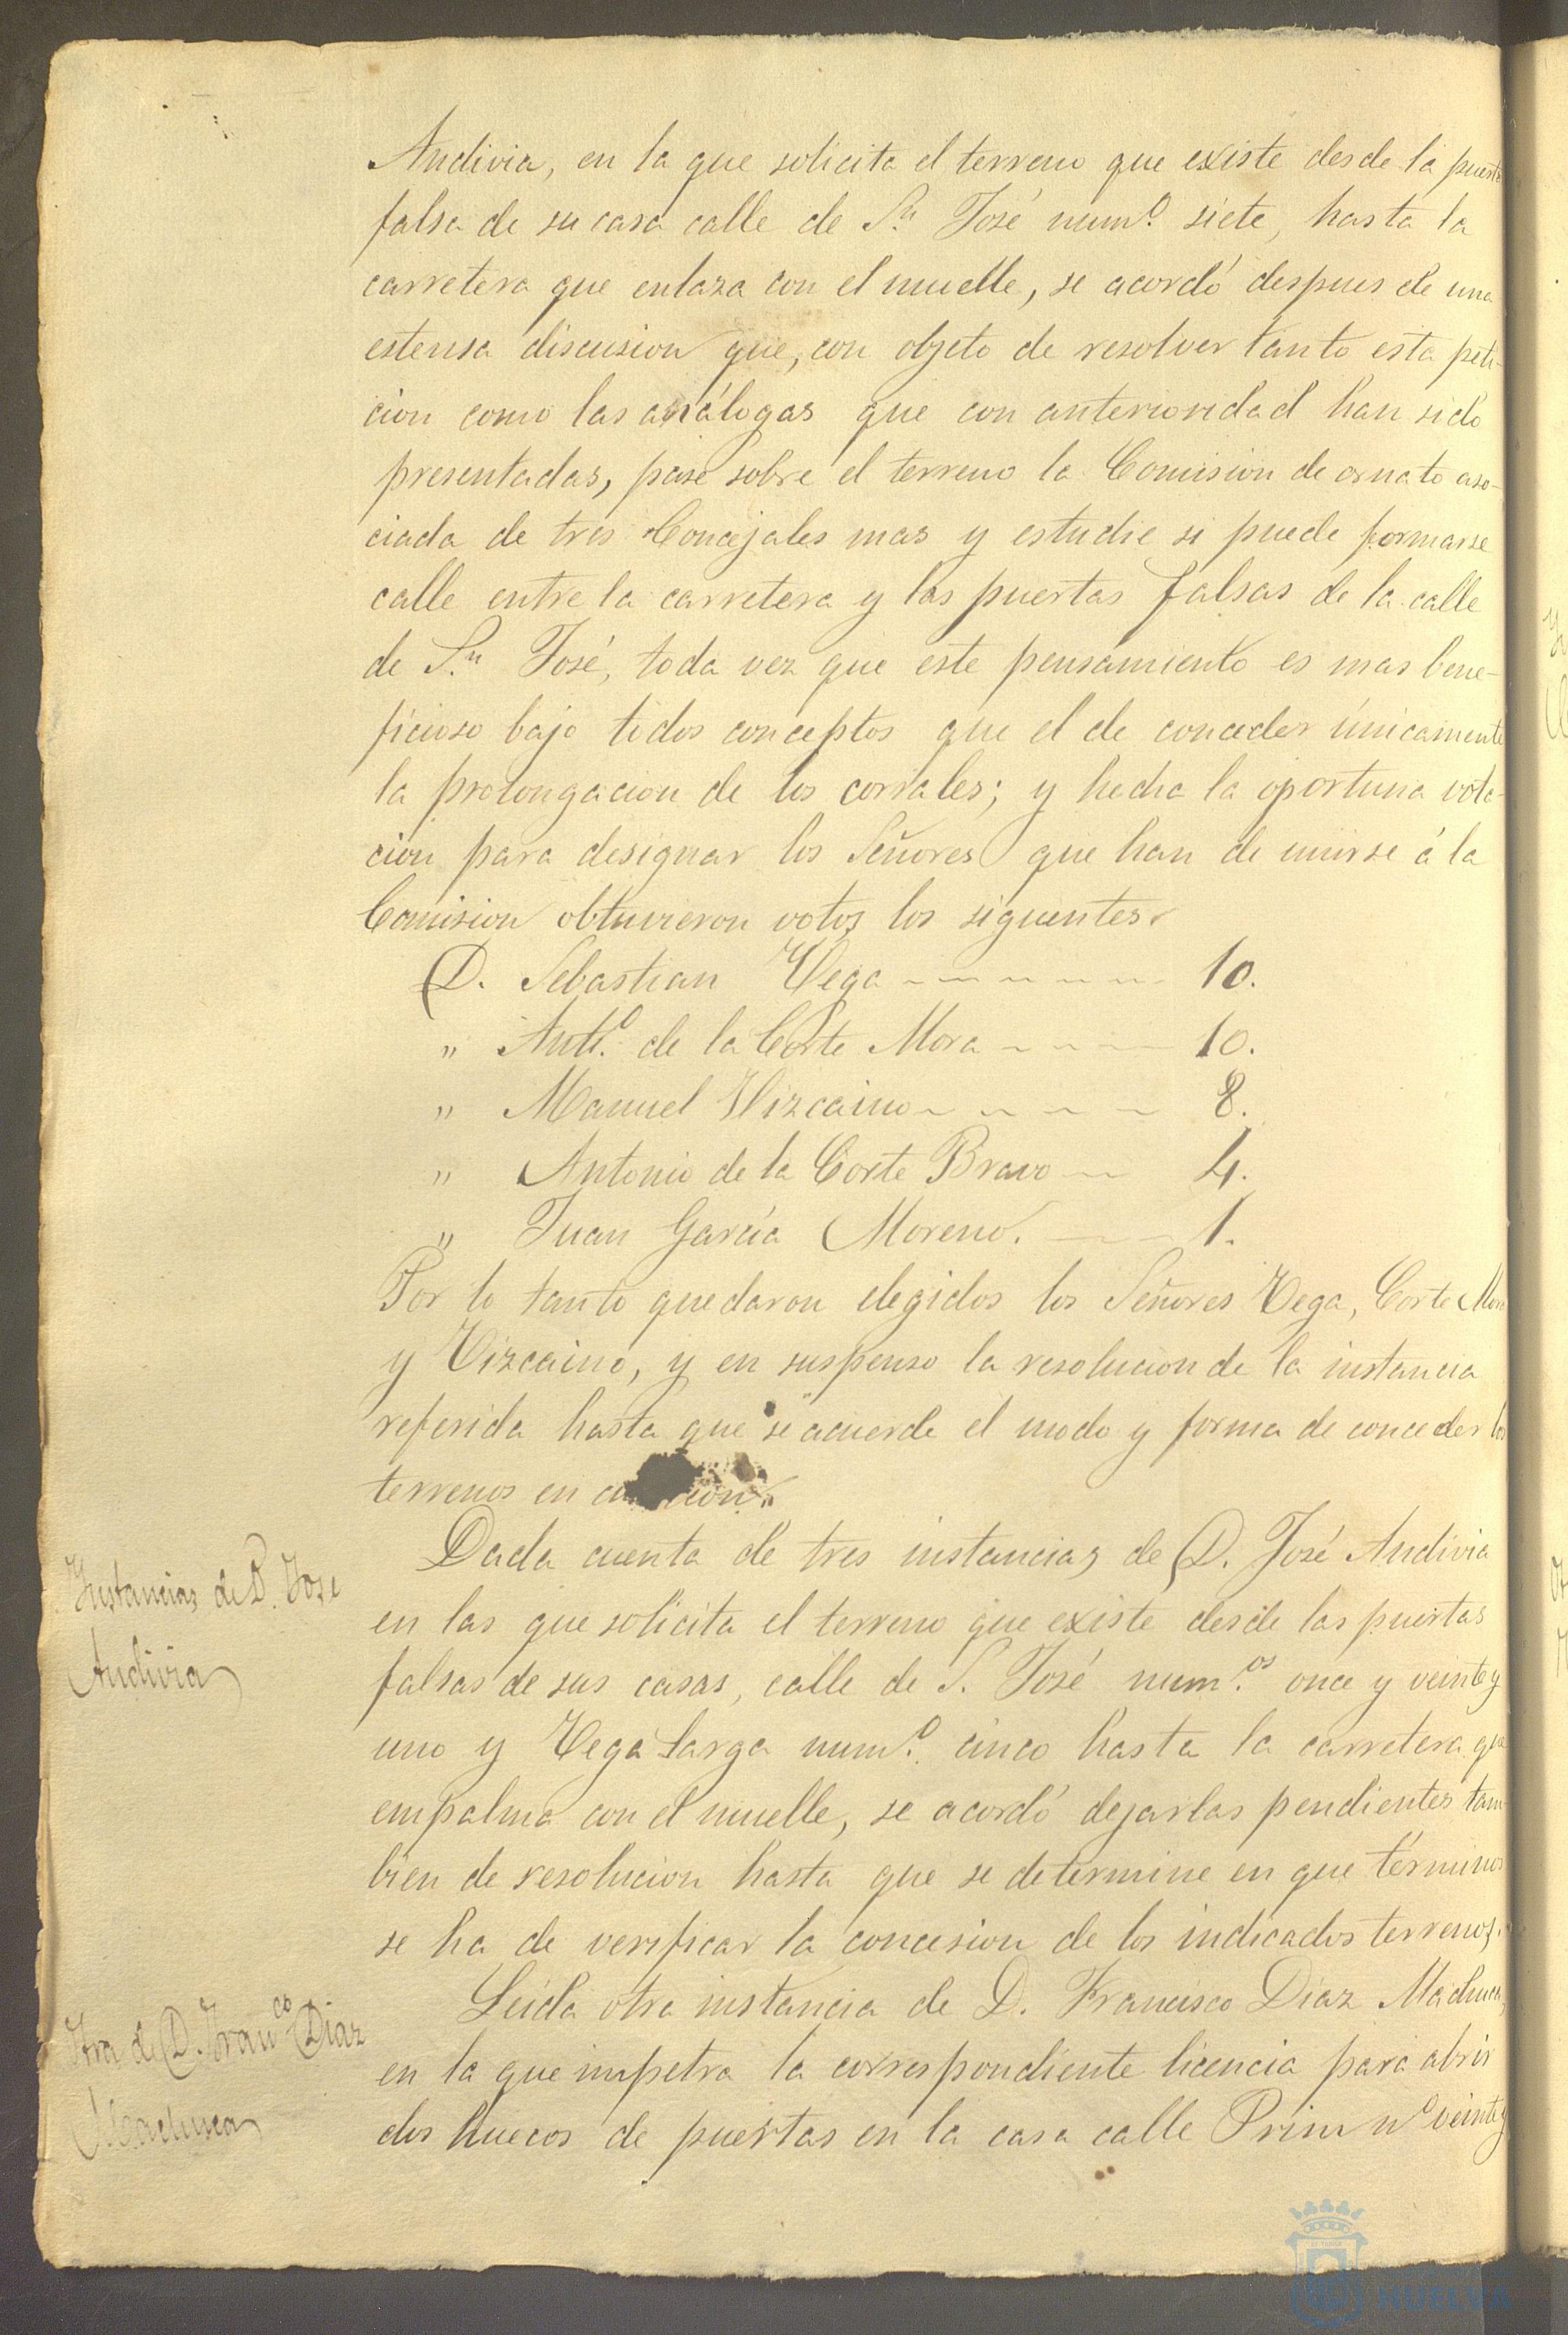 Andivia, en la que solicita el terreno que existe desde la puerta
falsa de su casa calle de Sn José numo. siete, hasta la
carretera que enlaza con el muelle, se acordó despues de una
estensa discusion que, con objeto de resolver tanto esta peti-
cion como las análogas que con anterioridad han sido
presentadas, pase sobre el terreno la Comision de ornato aso-
ciada de tres Concejales mas y estudie si puede formarse
calle entre la carretera y las puertas falsas de la calle
de Sn. José, toda vez que este pensamiento es mas bene-
ficioso bajo todos conceptos que el de conceder únicamente
la prolongacion de los corrales; y hecha la oportuna vota-
cion para designar los Señores que han de unirse á la
Comision obtuvieron votos los siguientes.
D. Sebastian Vega 10.
" Anto. de la Corte Mora 10.
" Manuel Vizcaino 8.
" Antonio de la Corte Bravo 4.
" Juan García Moreno. 1.
Por lo tanto quedaron elegidos los Señores Vega, Corte Mora
y Vizcaino, y en suspenso la resolucion de la instancia
referida hasta que se acuerde el modo y forma de conceder los
terrenos en cion.
Instancias de D. Jose
Andivia
Dada cuenta de tres instancias de D. José Andivia
en las que solicita el terreno que existe desde las puertas
falsas de sus casas, calle de S. José numos. once y veinte y
uno y Vega Larga numo. cinco hasta la carretera que
empalma con el muelle, se acordó dejarlas pendientes tam
bien de resolucion hasta que se determine en que términos
se ha de verificar la concesion de los indicados terrenos.
Otra de D. Franco Diaz
Machuca
Leida otra instancia de D. Francisco Diaz Machuca,
en la que impetra la correspondiente licencia para abrir
dos huecos de puertas en la casa calle Prim no veinte y
HUELVA